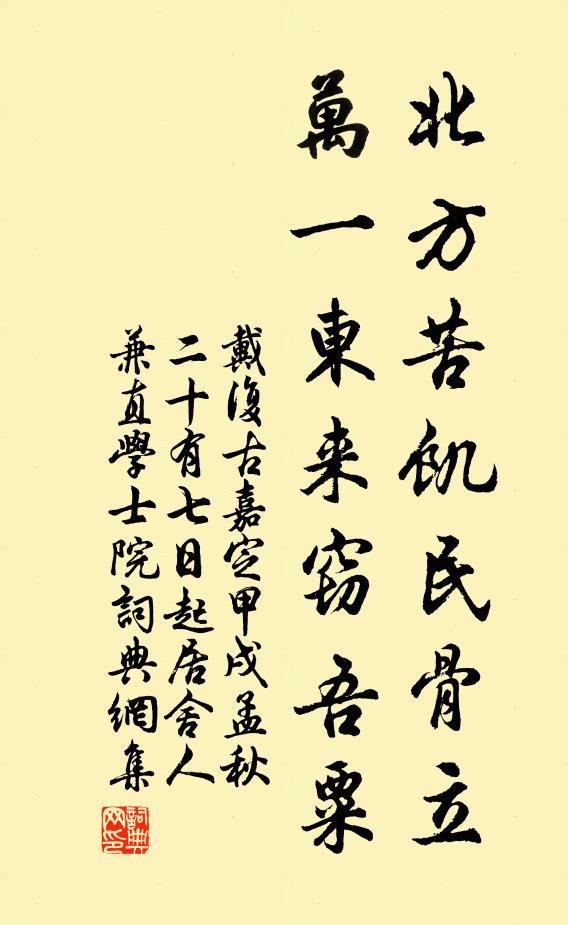 北方苦飢民骨立
萬一東来窃吾粟
戴復古嘉定甲戌孟秋
二十有七日起居舍人
兼直學士院詞典網集
詞典
网印